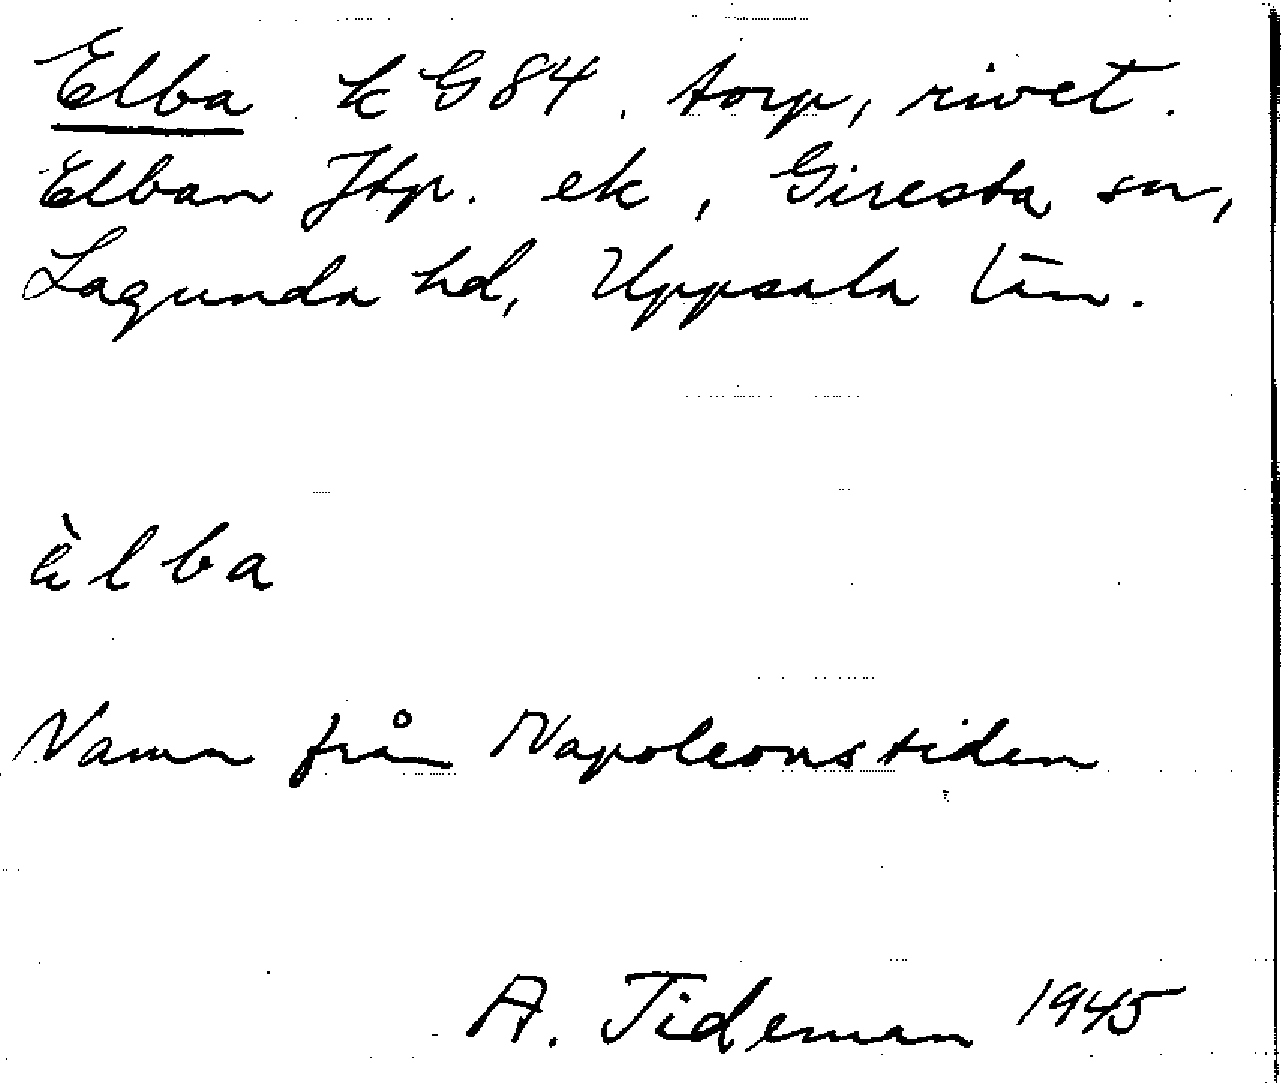 Elba k G 84. torp, rivet.
Elban Jtp. ek, Giresta sn,
Lagunda hd, Uppsala län.
èlba
Namn från Napoleonstiden
A. Tideman 1945